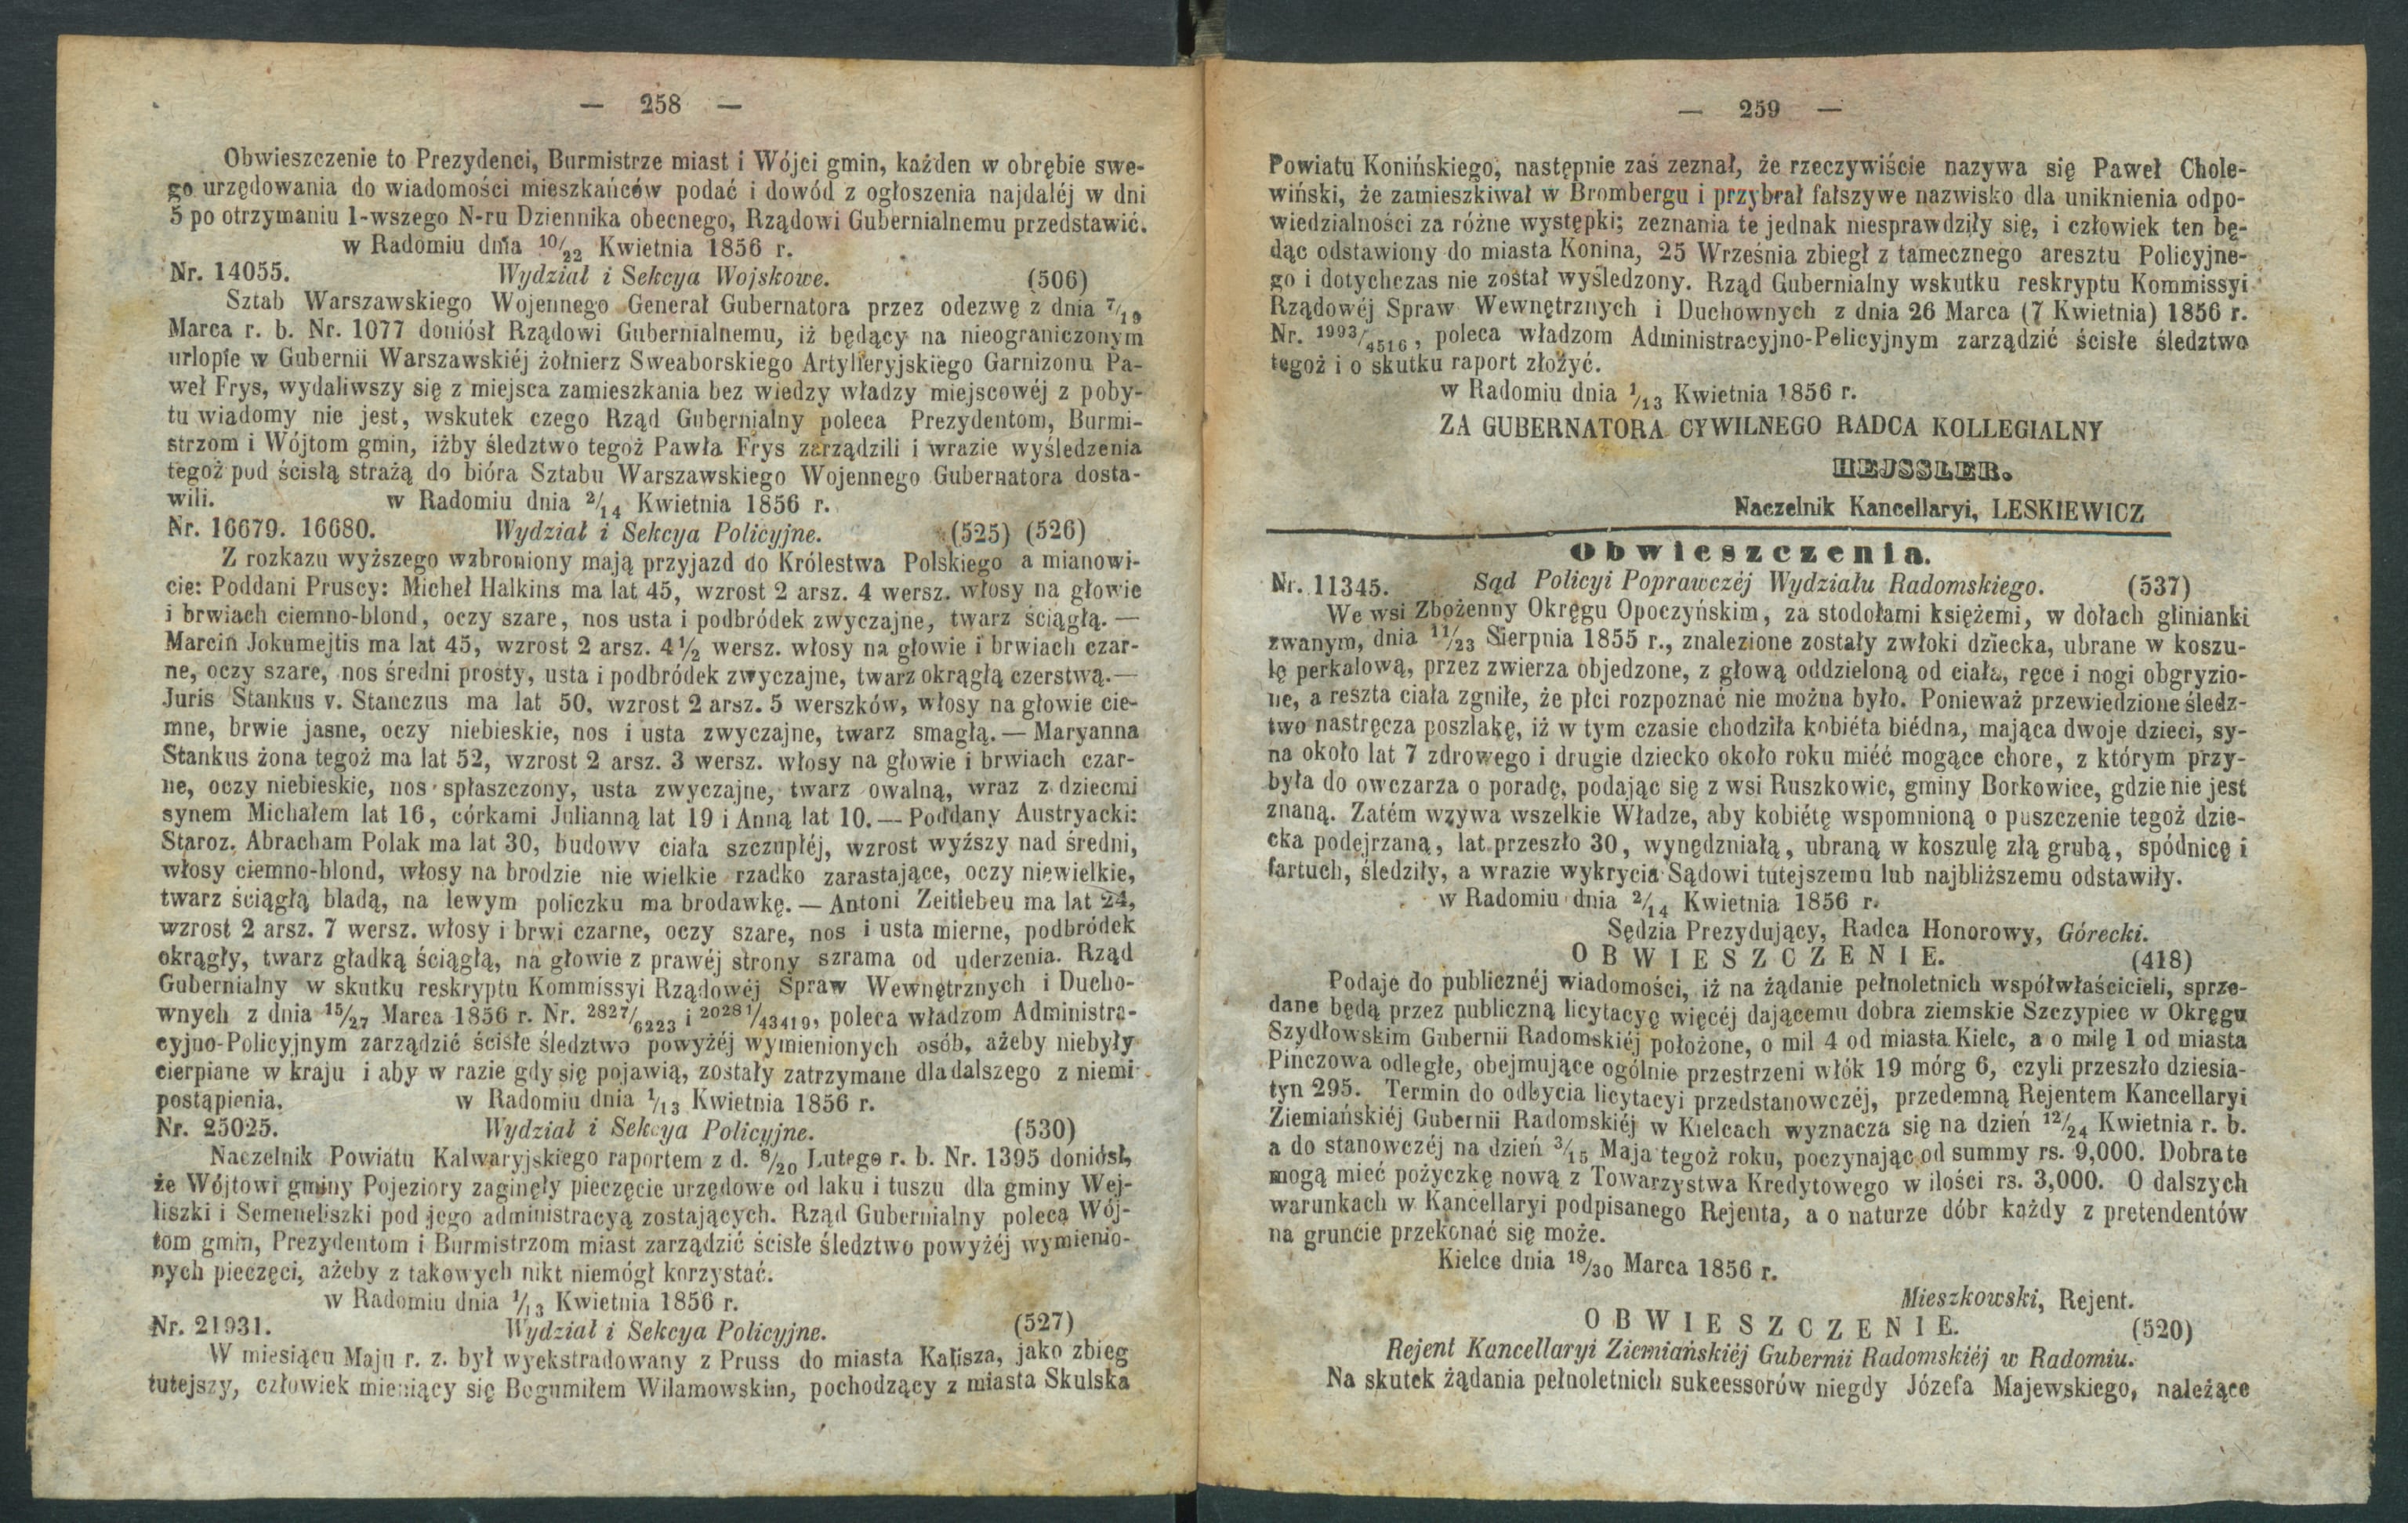 — 258 —
Obwieszczenie to Prezydenci, Burmistrze miast i Wójci gmin, każden w obrębie swe-
go urzędowania do wiadomości mieszkańców podać i dowód z ogłoszenia najdaléj w dni
5 po otrzymaniu 1-wszego N-ru Dziennika obecnego, Rządowi Gubernialnemu przedstawić.
w Radomiu dnia 10/22 Kwietnia 1856 r.
Nr. 14055. Wydział i Sekcya Wojskowe. (506)
Sztab Warszawskiego Wojennego Generał Gubernatora przez odezwę z dnia 7/19
Marca r. b. Nr. 1077 doniósł Rządowi Gubernialnemu, iż będący na nieograniczonym
urlopie w Gubernii Warszawskiéj żołnierz Sweaborskiego Artylleryjskiego Garnizonu Pa-
weł Frys, wydaliwszy się z miejsca zamieszkania bez wiedzy władzy miejscowéj z poby-
tu wiadomy nie jest, wskutek czego Rząd Gubernialny poleca Prezydentom, Burmi-
strzom i Wójtom gmin, iżby śledztwo tegoż Pawła Frys zarządzili i wrazie wyśledzenia
tegoż pod ścisłą strażą do bióra Sztabu Warszawskiego Wojennego Gubernatora dosta-
wili. w Radomiu dnia 2/14 Kwietnia 1856 r.
Nr. 16679. 16680. Wydział i Sekcya Policyjne. (525) (526)
Z rozkazu wyższego wzbroniony mają przyjazd do Królestwa Polskiego a mianowi-
cie: Poddani Pruscy: Micheł Halkins ma lat 45, wzrost 2 arsz. 4 wersz. włosy na głowie
i brwiach ciemno-blond, oczy szare, nos usta i podbródek zwyczajne, twarz ściągłą. —
Marcin Jokumejtis ma lat 45, wzrost 2 arsz. 4½ wersz. włosy na głowie i brwiach czar-
ne, oczy szare, nos średni prosty, usta i podbródek zwyczajne, twarz okrągłą czerstwą.—
Juris Stankus v. Stanczus ma lat 50, wzrost 2 arsz. 5 werszków, włosy na głowie cie-
mne, brwie jasne, oczy niebieskie, nos i usta zwyczajne, twarz smagłą. — Maryanna
Stankus żona tegoż ma lat 52, wzrost 2 arsz. 3 wersz. włosy na głowie i brwiach czar-
ne, oczy niebieskie, nos spłaszczony, usta zwyczajne, twarz owalną, wraz z dziecmi
synem Michałem lat 16, córkami Julianną lat 19 i Anną lat 10. — Poddany Austryacki:
Staroz. Abracham Polak ma lat 30, budowy ciała szczupłéj, wzrost wyższy nad średni,
włosy ciemno-blond, włosy na brodzie nie wielkie rzadko zarastające, oczy niewielkie,
twarz ściągłą bladą, na lewym policzku ma brodawkę. — Antoni Zeitlebeu ma lat 24,
wzrost 2 arsz. 7 wersz. włosy i brwi czarne, oczy szare, nos i usta mierne, podbródek
okrągły, twarz gładką ściągłą, na głowie z prawéj strony szrama od uderzenia. Rząd
Gubernialny w skutku reskryptu Kommissyi Rządowéj Spraw Wewnętrznych i Ducho-
wnych z dnia 15/27 Marca 1856 r. Nr. 2827/6223 i 20281/43419, poleca władzom Administra-
cyjno-Policyjnym zarządzić ścisłe śledztwo powyżéj wymienionych osób, ażeby niebyły
cierpiane w kraju i aby w razie gdy się pojawią, zostały zatrzymane dla dalszego z niemi
postąpienia. w Radomiu dnia 1/13 Kwietnia 1856 r.
Nr. 25025. Wydział i Sekcya Policyjne. (530)
Naczelnik Powiatu Kalwaryjskiego raportem z d. 8/20 Lutego r. b. Nr. 1395 doniósł,
że Wójtowi gminy Pojeziory zaginęły pieczęcie urzędowe od laku i tuszu dla gminy Wej-
liszki i Semeneliszki pod jego administracyą zostających. Rząd Gubernialny poleca Wój-
tom gmin, Prezydentom i Burmistrzom miast zarządzić ścisłe śledztwo powyżéj wymienio-
nych pieczęci, ażeby z takowych nikt niemógł korzystać.
w Radomiu dnia 1/13 Kwietnia 1856 r.
Nr. 21931. Wydział i Sekcya Policyjne. (527)
W miesiącu Maju r. z. był wyekstradowany z Pruss do miasta Kalisza, jako zbieg
tutejszy, człowiek mieniący się Bogumiłem Wilamowskim, pochodzący z miasta Skulska
— 259 —
Powiatu Konińskiego, następnie zaś zeznał, że rzeczywiście nazywa się Paweł Chole-
wiński, że zamieszkiwał w Brombergu i przybrał fałszywe nazwisko dla uniknienia odpo-
wiedzialności za różne występki; zeznania te jednak niesprawdziły się, i człowiek ten bę-
dąc odstawiony do miasta Konina, 25 Września zbiegł z tamecznego aresztu Policyjne-
go i dotychczas nie został wyśledzony. Rząd Gubernialny wskutku reskryptu Kommissyi
Rządowéj Spraw Wewnętrznych i Duchownych z dnia 26 Marca (7 Kwietnia) 1856 r.
Nr. 1993/4516, poleca władzom Administracyjno-Policyjnym zarządzić ścisłe śledztwo
tegoż i o skutku raport złożyć.
w Radomiu dnia 1/13 Kwietnia 1856 r.
ZA GUBERNATORA CYWILNEGO RADCA KOLLEGIALNY
HEJSSLER.
Naczelnik Kancellaryi, LESKIEWICZ
Obwieszczenia.
Nr. 11345. Sąd Policyi Poprawczéj Wydziału Radomskiego. (537)
We wsi Zbożenny Okręgu Opoczyńskim, za stodołami księżemi, w dołach glinianki
zwanym, dnia 11/23 Sierpnia 1855 r., znalezione zostały zwłoki dziecka, ubrane w koszu-
lę perkalową, przez zwierza objedzone, z głową oddzieloną od ciała, ręce i nogi obgryzio-
ne, a reszta ciała zgniłe, że płci rozpoznać nie można było. Ponieważ przewiedzione śledz-
two nastręcza poszlakę, iż w tym czasie chodziła kobiéta biédna, mająca dwoje dzieci, sy-
na około lat 7 zdrowego i drugie dziecko około roku miéć mogące chore, z którym przy-
była do owczarza o poradę, podając się z wsi Ruszkowic, gminy Borkowice, gdzie nie jest
znaną. Zatém wzywa wszelkie Władze, aby kobiétę wspomnioną o puszczenie tegoż dzie-
cka podejrzaną, lat przeszło 30, wynędzniałą, ubraną w koszulę złą grubą, spódnicę i
fartuch, śledziły, a wrazie wykrycia Sądowi tutejszemu lub najbliższemu odstawiły.
w Radomiu dnia 2/14 Kwietnia 1856 r.
Sędzia Prezydujący, Radca Honorowy, Górecki.
OBWIESZCZENIE. (418)
Podaje do publicznéj wiadomości, iż na żądanie pełnoletnich współwłaścicieli, sprze-
dane będą przez publiczną licytacyę więcéj dającemu dobra ziemskie Szczypiec w Okręgu
Szydłowskim Gubernii Radomskiéj położone, o mil 4 od miasta Kielc, a o milę 1 od miasta
Pińczowa odległe, obejmujące ogólnie przestrzeni włók 19 mórg 6, czyli przeszło dziesia-
tyn 295. Termin do odbycia licytacyi przedstanowczéj, przedemną Rejentem Kancellaryi
Ziemiańskiéj Gubernii Radomskiéj w Kielcach wyznacza się na dzień 12/24 Kwietnia r. b.
a do stanowczéj na dzień 3/15 Maja tegoż roku, poczynając od summy rs. 9,000. Dobra te
mogą mieć pożyczkę nową z Towarzystwa Kredytowego w ilości rs. 3,000. O dalszych
warunkach w Kancellaryi podpisanego Rejenta, a o naturze dóbr każdy z pretendentów
na gruncie przekonać się może.
Kielce dnia 18/30 Marca 1856 r.
Mieszkowski, Rejent.
OBWIESZCZENIE. (520)
Rejent Kancellaryi Ziemiańskiéj Gubernii Radomskiéj w Radomiu.
Na skutek żądania pełnoletnich sukcessorów niegdy Józefa Majewskiego, należące